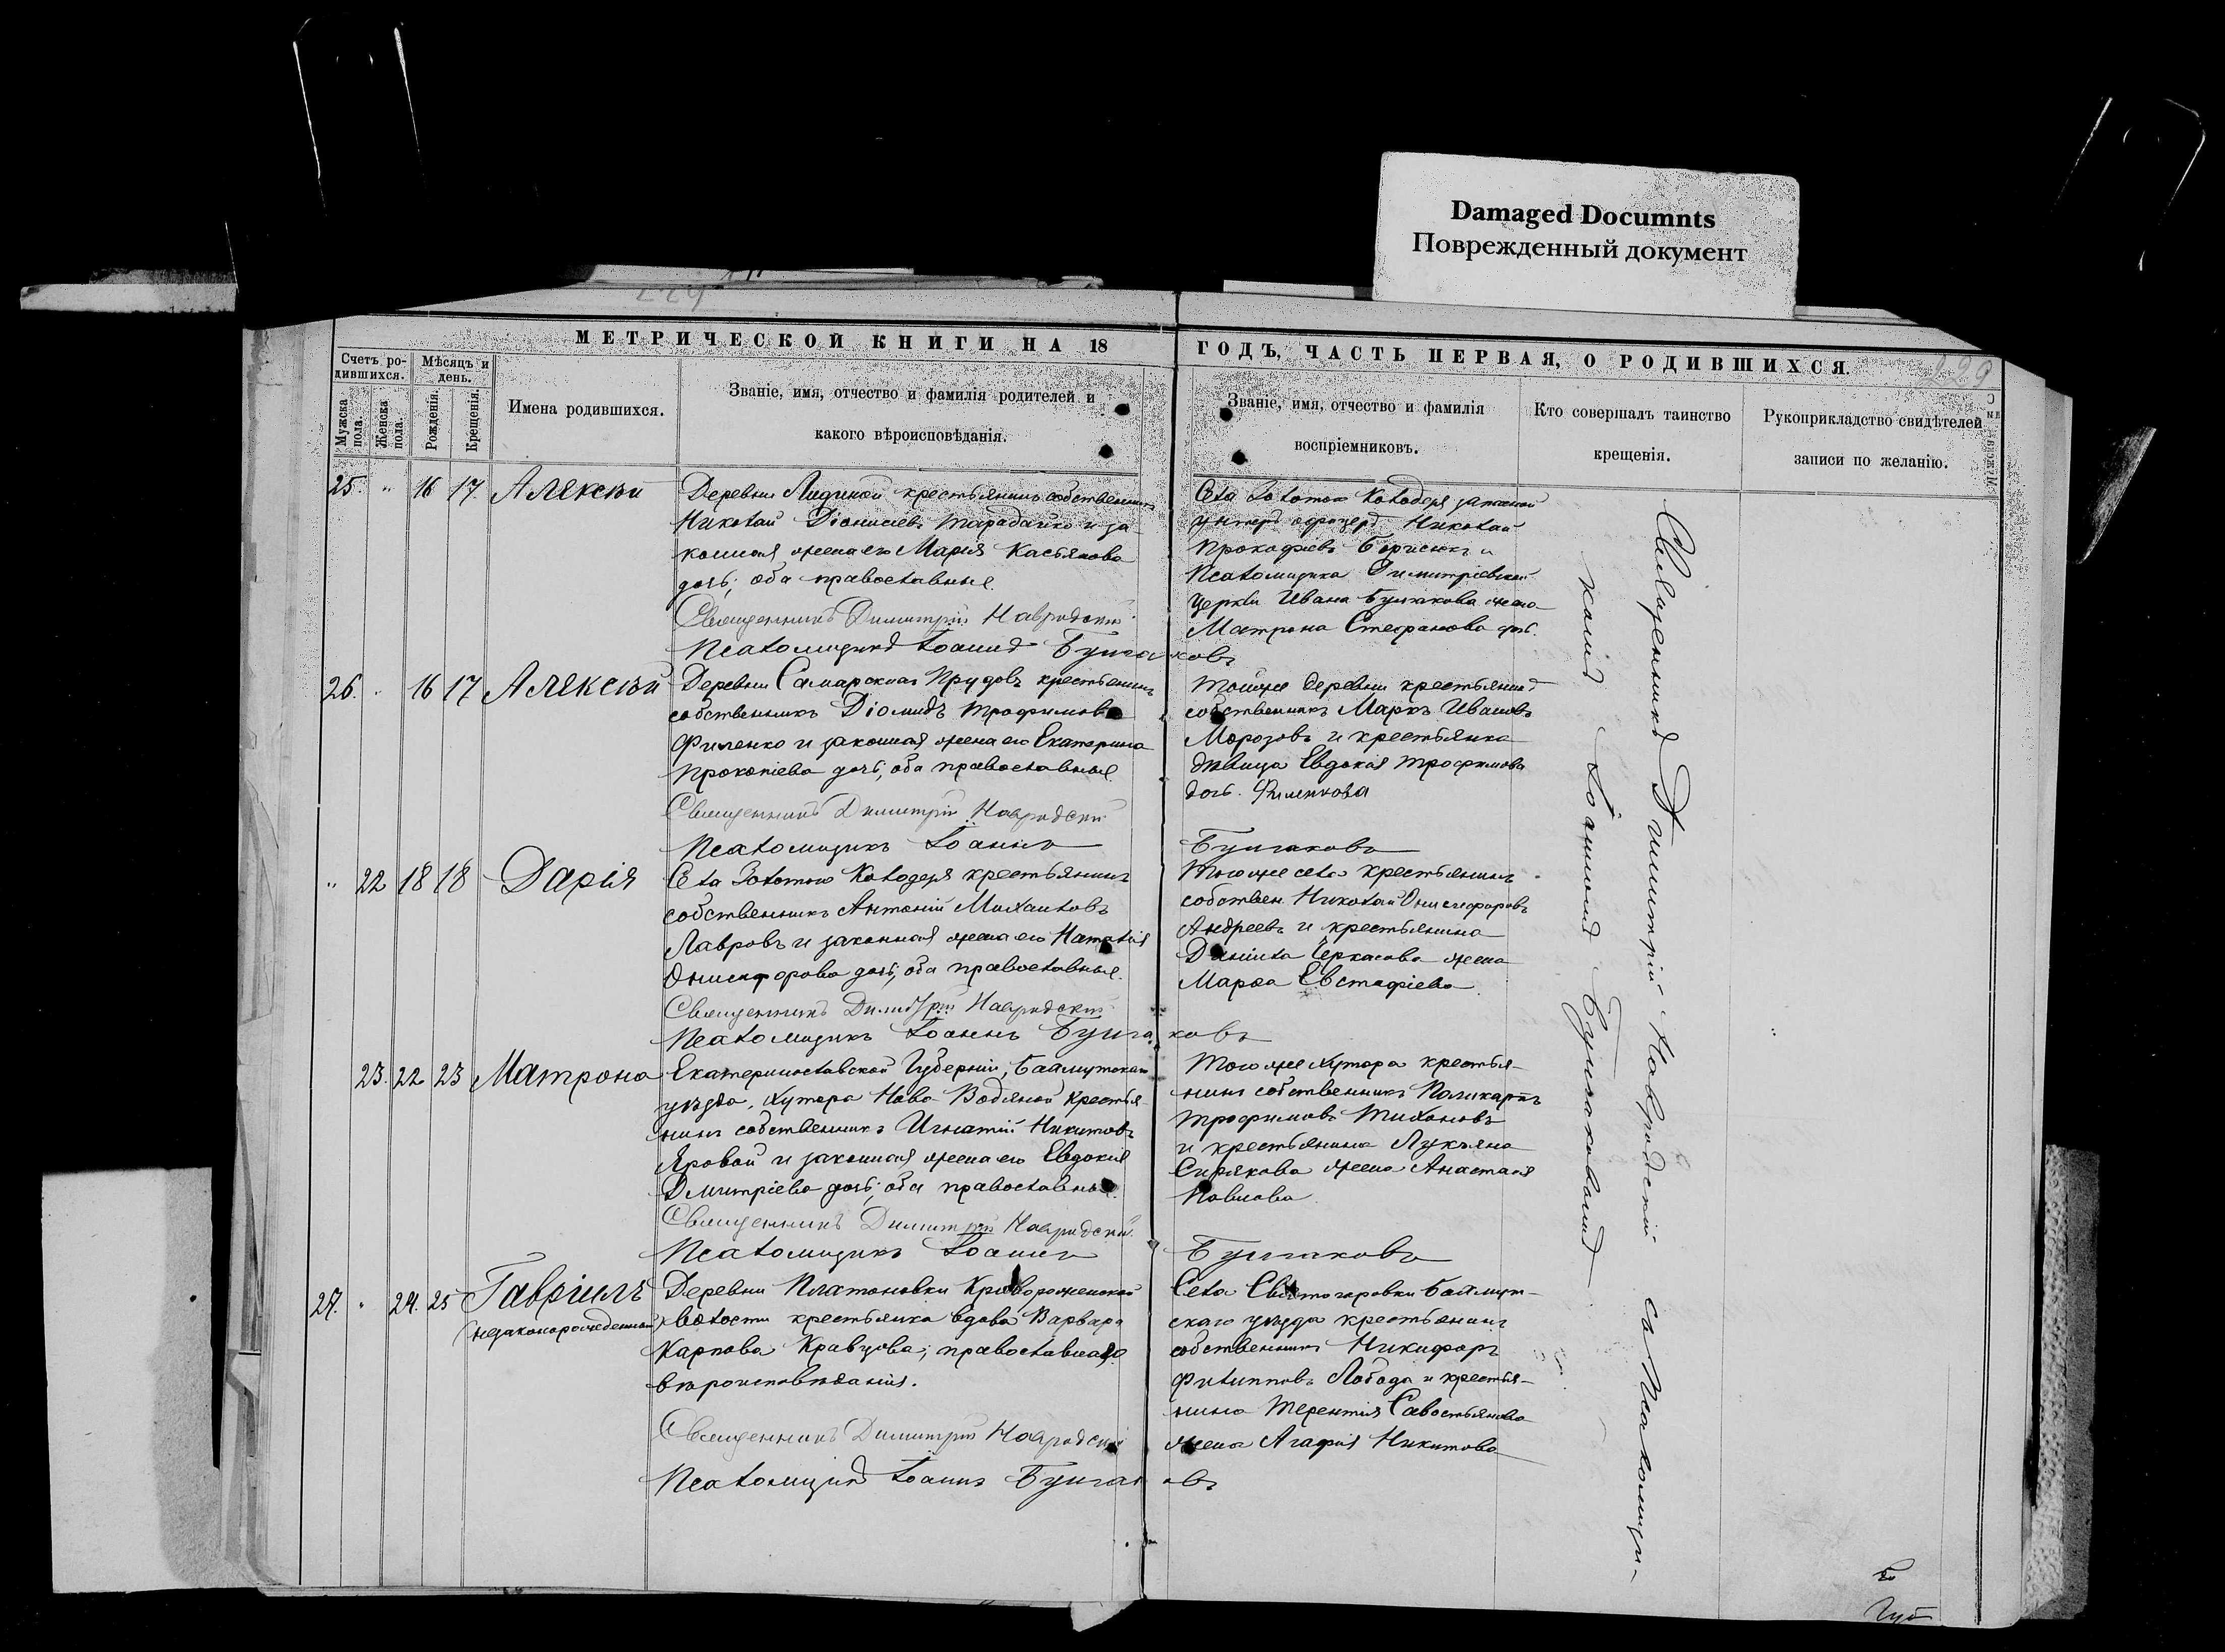 Damaged Documnts
Поврежденный документ
229
МЕТРИЧЕСКОЙ КНИГИ НА 18
ГОДЪ, ЧАСТЬ ПЕРВАЯ, О РОДИВШИХСЯ.
Счетъ ро-
дившихся.
Мѣсяцъ и
день.
Мужска
пола.
Женска
пола.
Рожденія.
Крещенія.
Имена родившихся.
Званіе, имя, отчество и фамилія родителей и
какого вѣроисповѣданія.
Званіе, имя, отчество и фамилія
воспріемниковъ.
Кто совершалъ таинство
крещенія.
Рукоприкладство свидѣтелей
записи по желанію.
25. " 16 17 Алексѣй
Деревни крестьянинъ собственникъ
Николай Діонисіевъ Тарадайко и за-
конная жена его Марія Касьянова
дочь; оба православные.
Священникъ Димитрій Навродскій
Псаломщикъ Іоаннъ Булгаковъ
Села Золотого Колодезя запасной
унтеръ офицеръ Николай
Прокофіевъ Борисюкъ и
Псаломщика Димитріевской
церкви Ивана Булгакова жена
Матрона Стефанова дочь.
26. " 16 17 Алексѣй
Деревни Самарскихъ Прудовъ крестьянинъ
собственникъ Діомидъ Трофимовъ
Филенко и законная жена его Екатерина
Прокопіева дочь; оба православные.
Священникъ Димитрій Навродскій
Псаломщикъ Іоаннъ Булгаковъ
Тойже деревни крестьянинъ
собственникъ Маркъ Ивановъ
Морозовъ и крестьянка
дѣвица Евдокія Трофимова
дочь. Филенкова
" 22 18 18 Дарія
Села Золотого Колодезя крестьянинъ
собственникъ Антоній Михаиловъ
Лавровъ и законная жена его Наталія
Онисифорова дочь; оба православные.
Священникъ Димитрій Навродскій
Псаломщикъ Іоаннъ Булгаковъ
Тогоже села крестьянинъ
собствен. Николай Онисифоровъ
Андреевъ и крестьянина
Даніила Черкасова жена
Марѳа Евстафіева.
23. 22 23 Матрона
Екатеринославской Губерніи, Бахмутскаго
уѣзда, хутора Ново-Водяной крестья-
нинъ собственникъ Игнатій Никитовъ
Яровой и законная жена его Евдокія
Дмитріева дочь; оба православные.
Священникъ Димитрій Навродскій
Псаломщикъ Іоаннъ Булгаковъ
Тогоже хутора крестья-
нинъ собственникъ Поликарпъ
Трофимовъ Тихоновъ
и крестьянина Лукьяна
Сирякова жена Анастасія
Павлова.
27. " 24. 25 Гавріилъ
(незаконорожденный)
Деревни Платоновки Криворожской
волости крестьянка вдова Варвара
Карпова Кравцова; православнаго
вѣроисповѣданія.
Священникъ Димитрій Навродскій
Псаломщикъ Іоаннъ Булгаковъ
Села Святогоровки Бахмут-
скаго уѣзда крестьянинъ
собственникъ Никифоръ
Филипповъ Лобода и крестья-
нина Терентія Савостьянова
жена Агафія Никитова
Священникъ Димитрій Навродскій съ Псаломщи-
комъ Іоанномъ Булгаковымъ